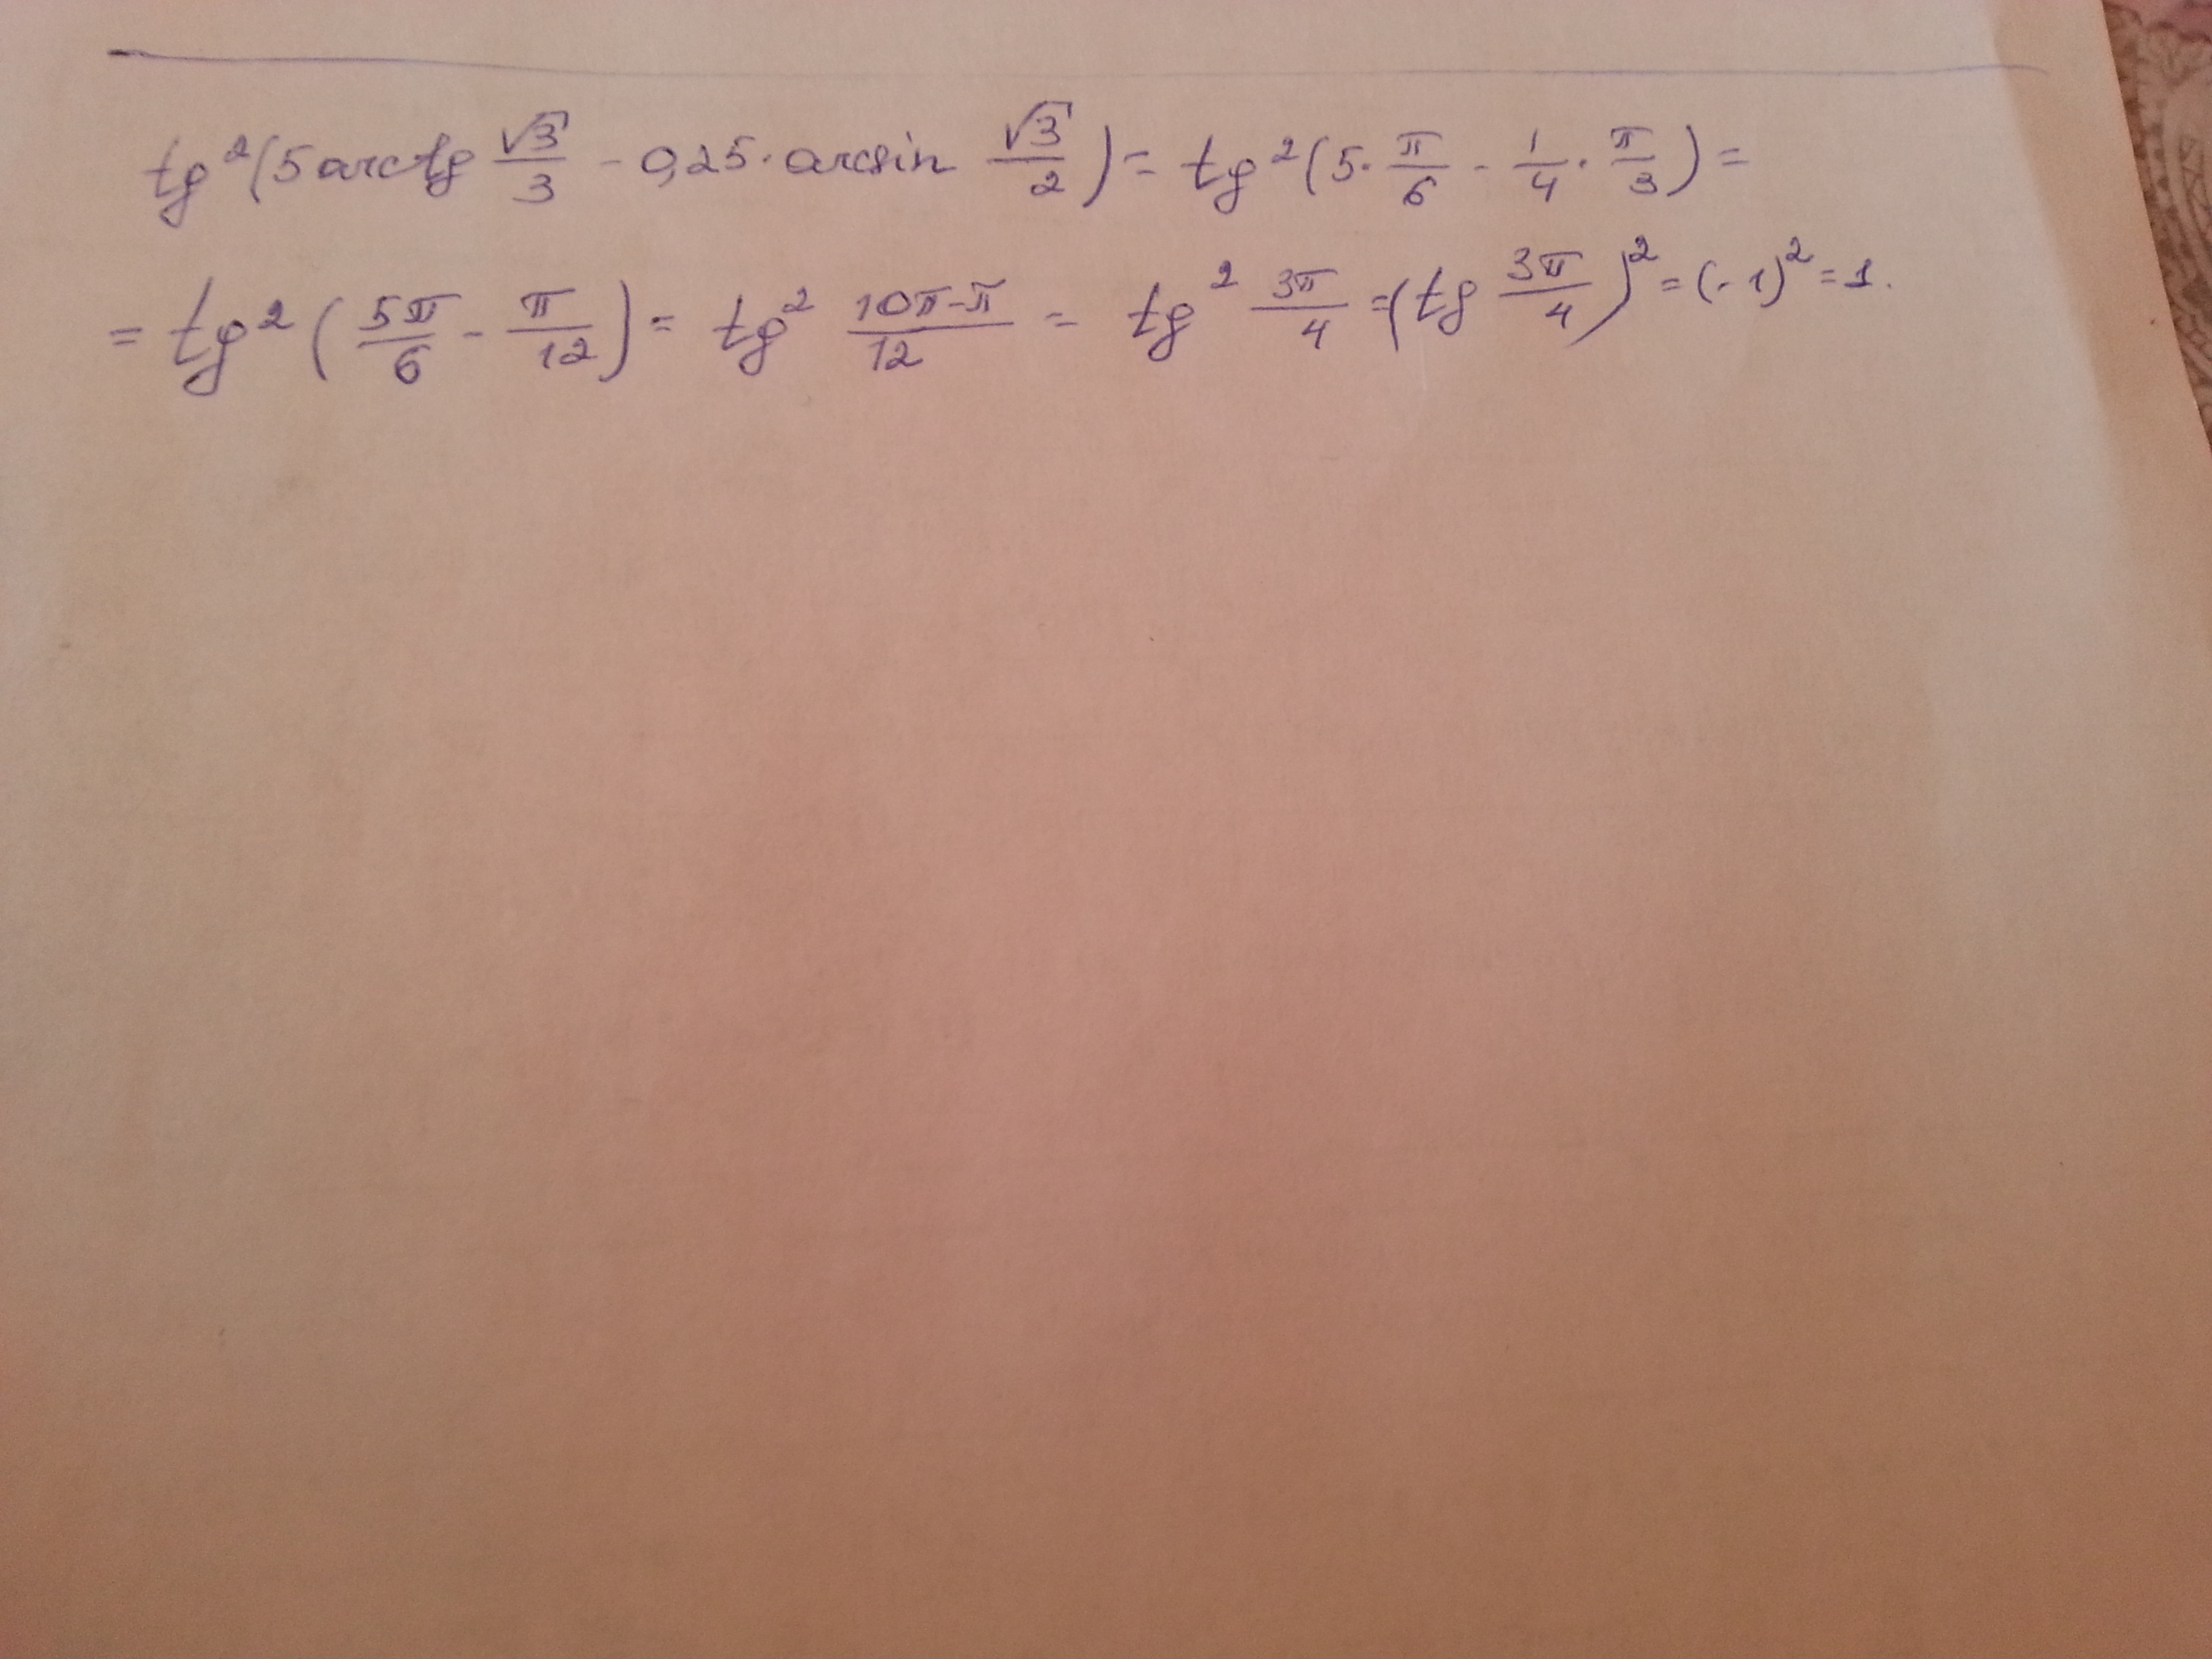 tg²(5 arctg √3/3 - 0,25 · arcsin √3/2) = tg²(5 · π/6 - 1/4 · π/3) =
= tg²(5π/6 - π/12) = tg² (10π-π)/12 = tg² 3π/4 = (tg 3π/4)² = (-1)² = 1.